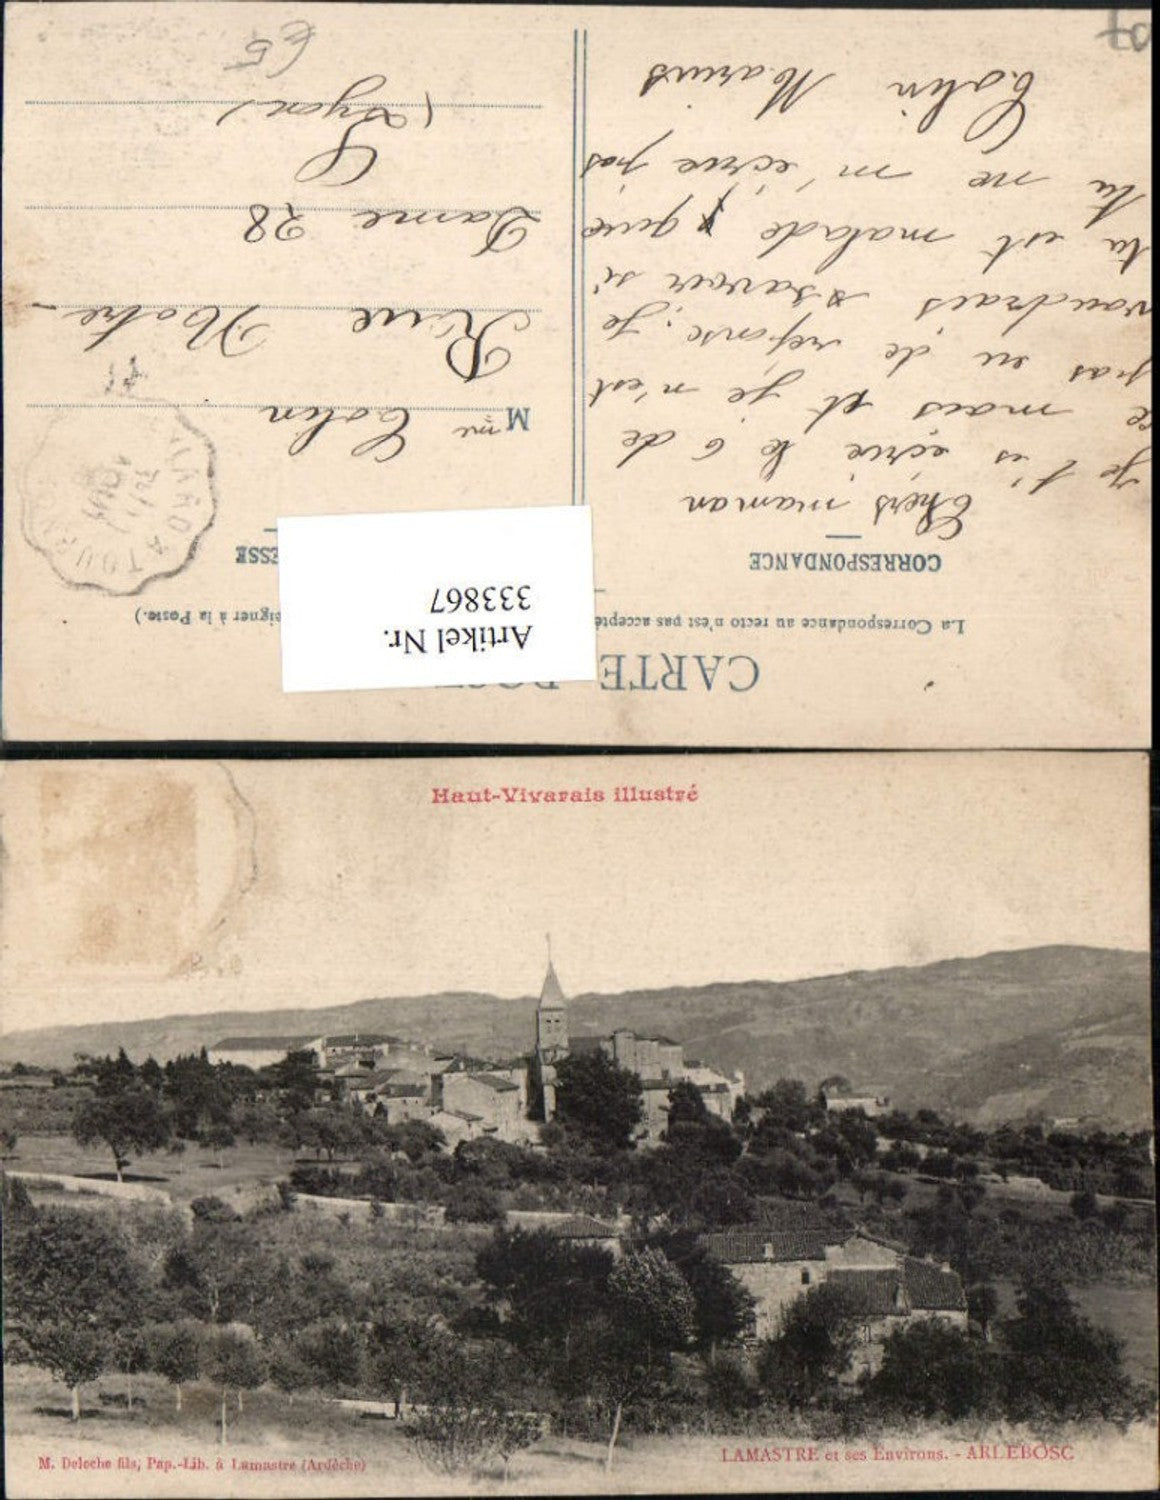 CARTE
La Correspondance au recto n'est pas accepté
eigner à la Poste.)
Artikel Nr.
333867
CORRESPONDANCE
ESSE
Chers maman
je t'is écrie le 6 de
ce mais et je n'est
pas eu de reponse. je
voudrais savoir si
tu est malade que
tu ne m'écrie pas
Colin Marius
Mme Colin
Rue Notre-
Dame 28
(Lyon)
65
Haut-Vivarais illustré
M. Deloche fils, Pap.-Lib. à Lamastre (Ardèche)
LAMASTRE et ses Environs. - ARLEBOSC